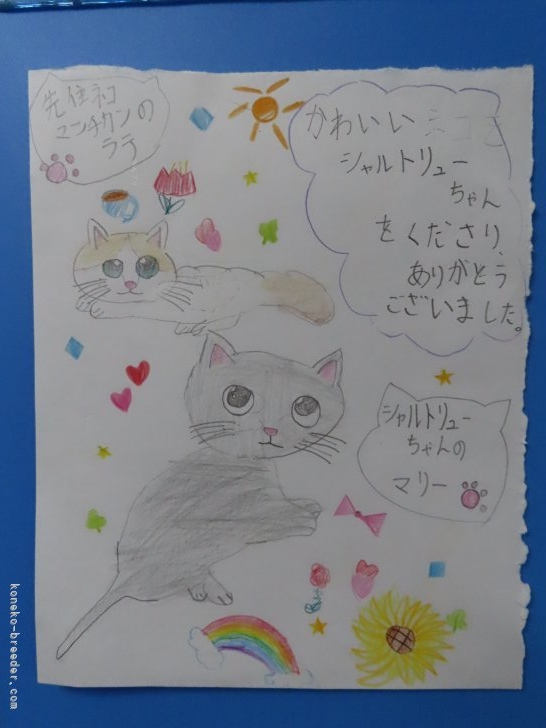 先住ネコ
マンチカンの
ラテ
かわいい
シャルトリュー
ちゃん
をくださり、
ありがとう
ございました。
シャルトリュー
ちゃんの
マリー
koneko-breeder.com